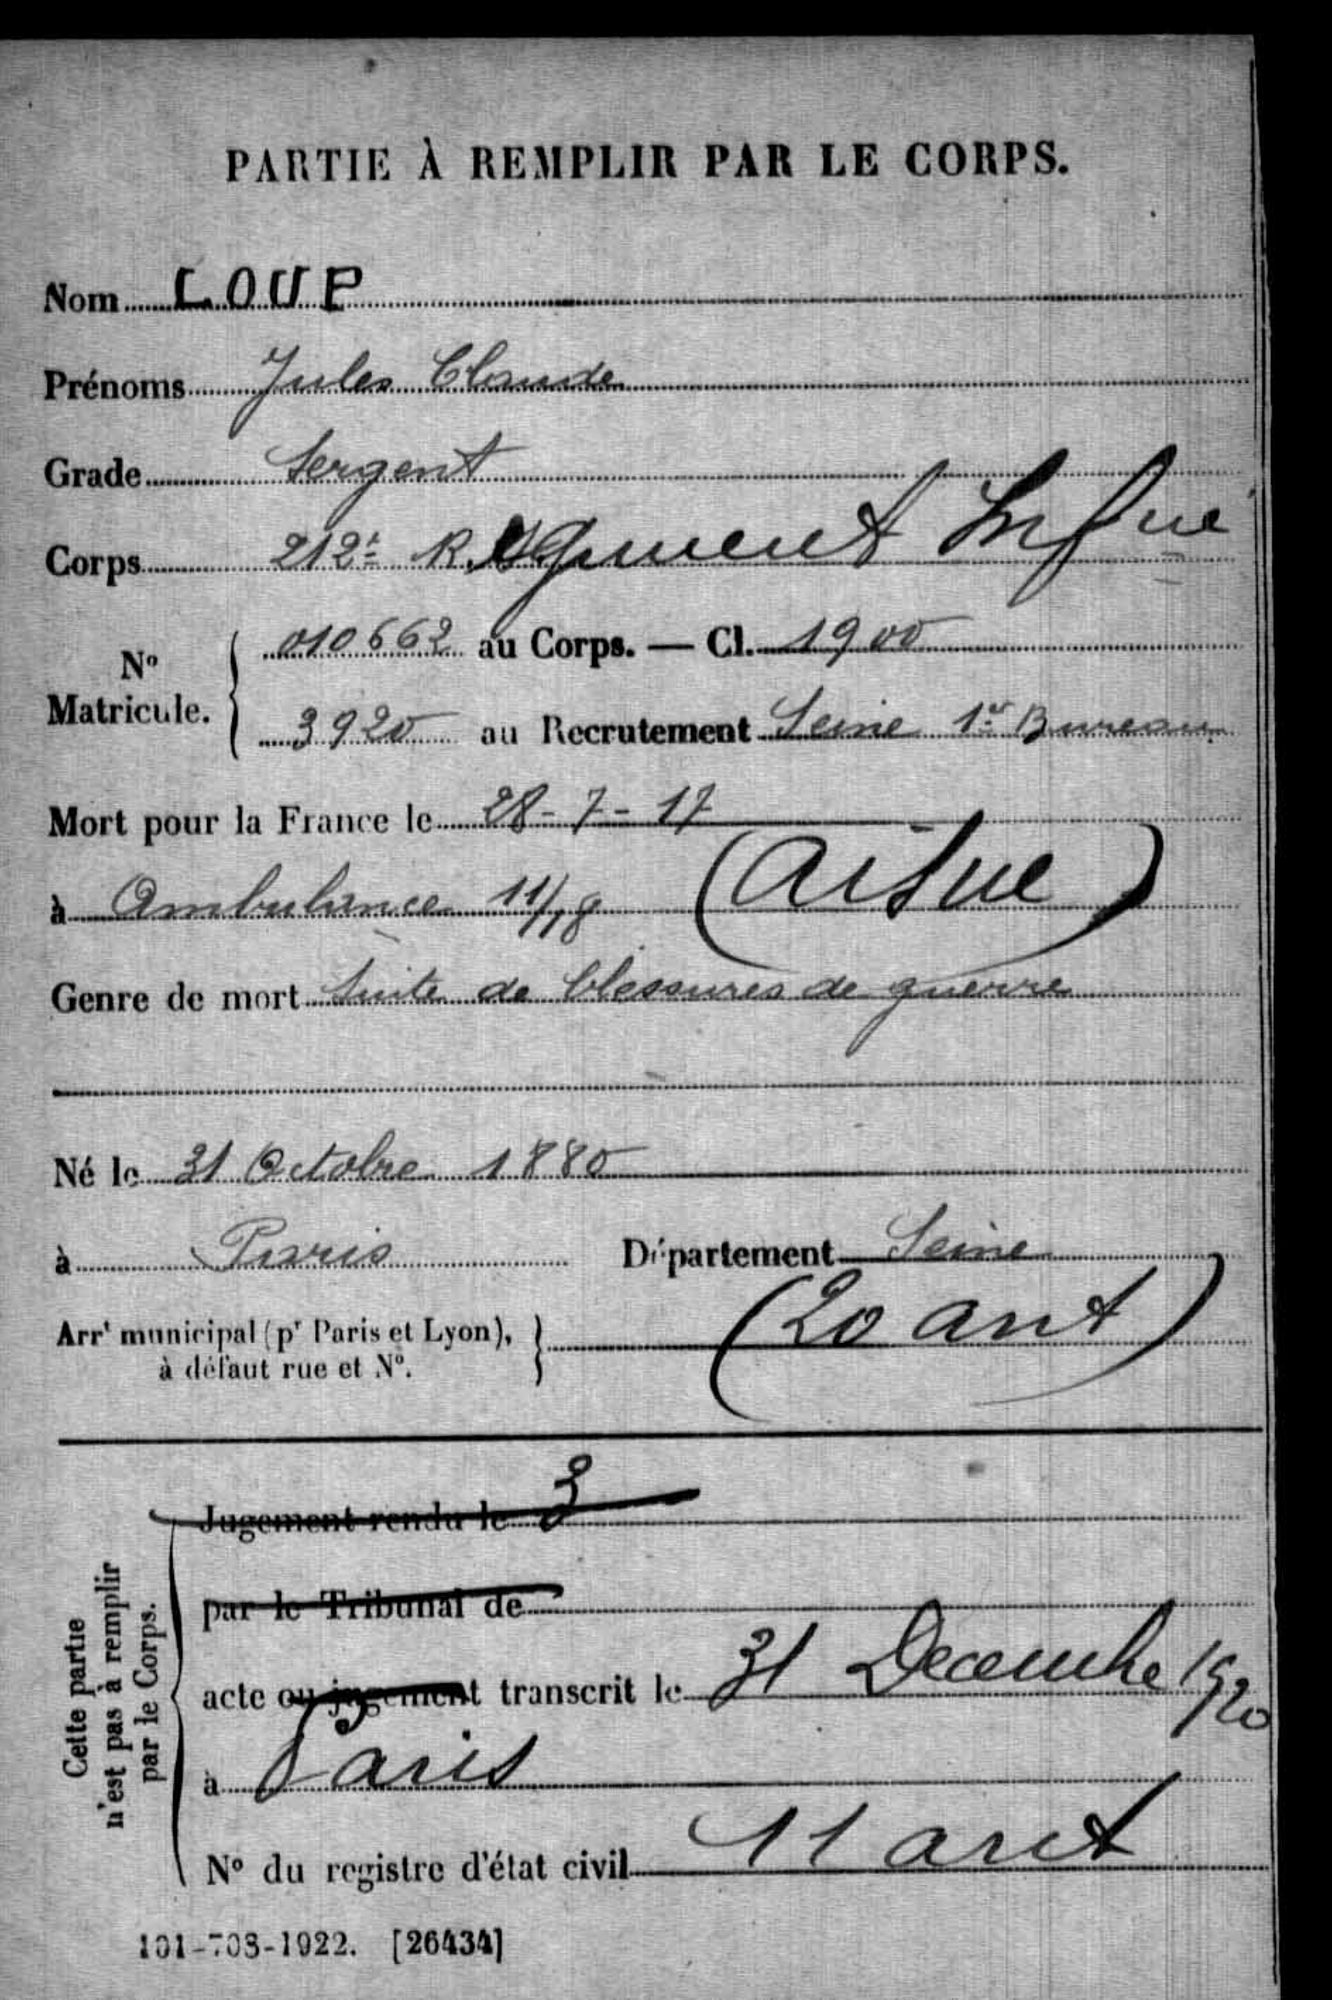 PARTIE À REMPLIR PAR LE CORPS.
Nom LOUP
Prénoms Jules Claude
Grade Sergent
Corps 212e Régiment Infrie
No Matricule. { 010662 au Corps. — Cl. 1900
3920 au Recrutement Seine 1er Bureau
Mort pour la France le 28-7-17
à Ambulance 11/18 (Aisne)
Genre de mort Suite de blessures de guerre
Né le 31 Octobre 1880
à Paris Département Seine
Arrt municipal (pr Paris et Lyon), à défaut rue et No. } (20 arrt)
Cette partie n'est pas à remplir par le Corps.
Jugement rendu le 3
par le Tribunal de
acte ou jugement transcrit le 31 Decembre 1920
à Paris
No du registre d'état civil 11 arrt
101-708-1922. [26434]